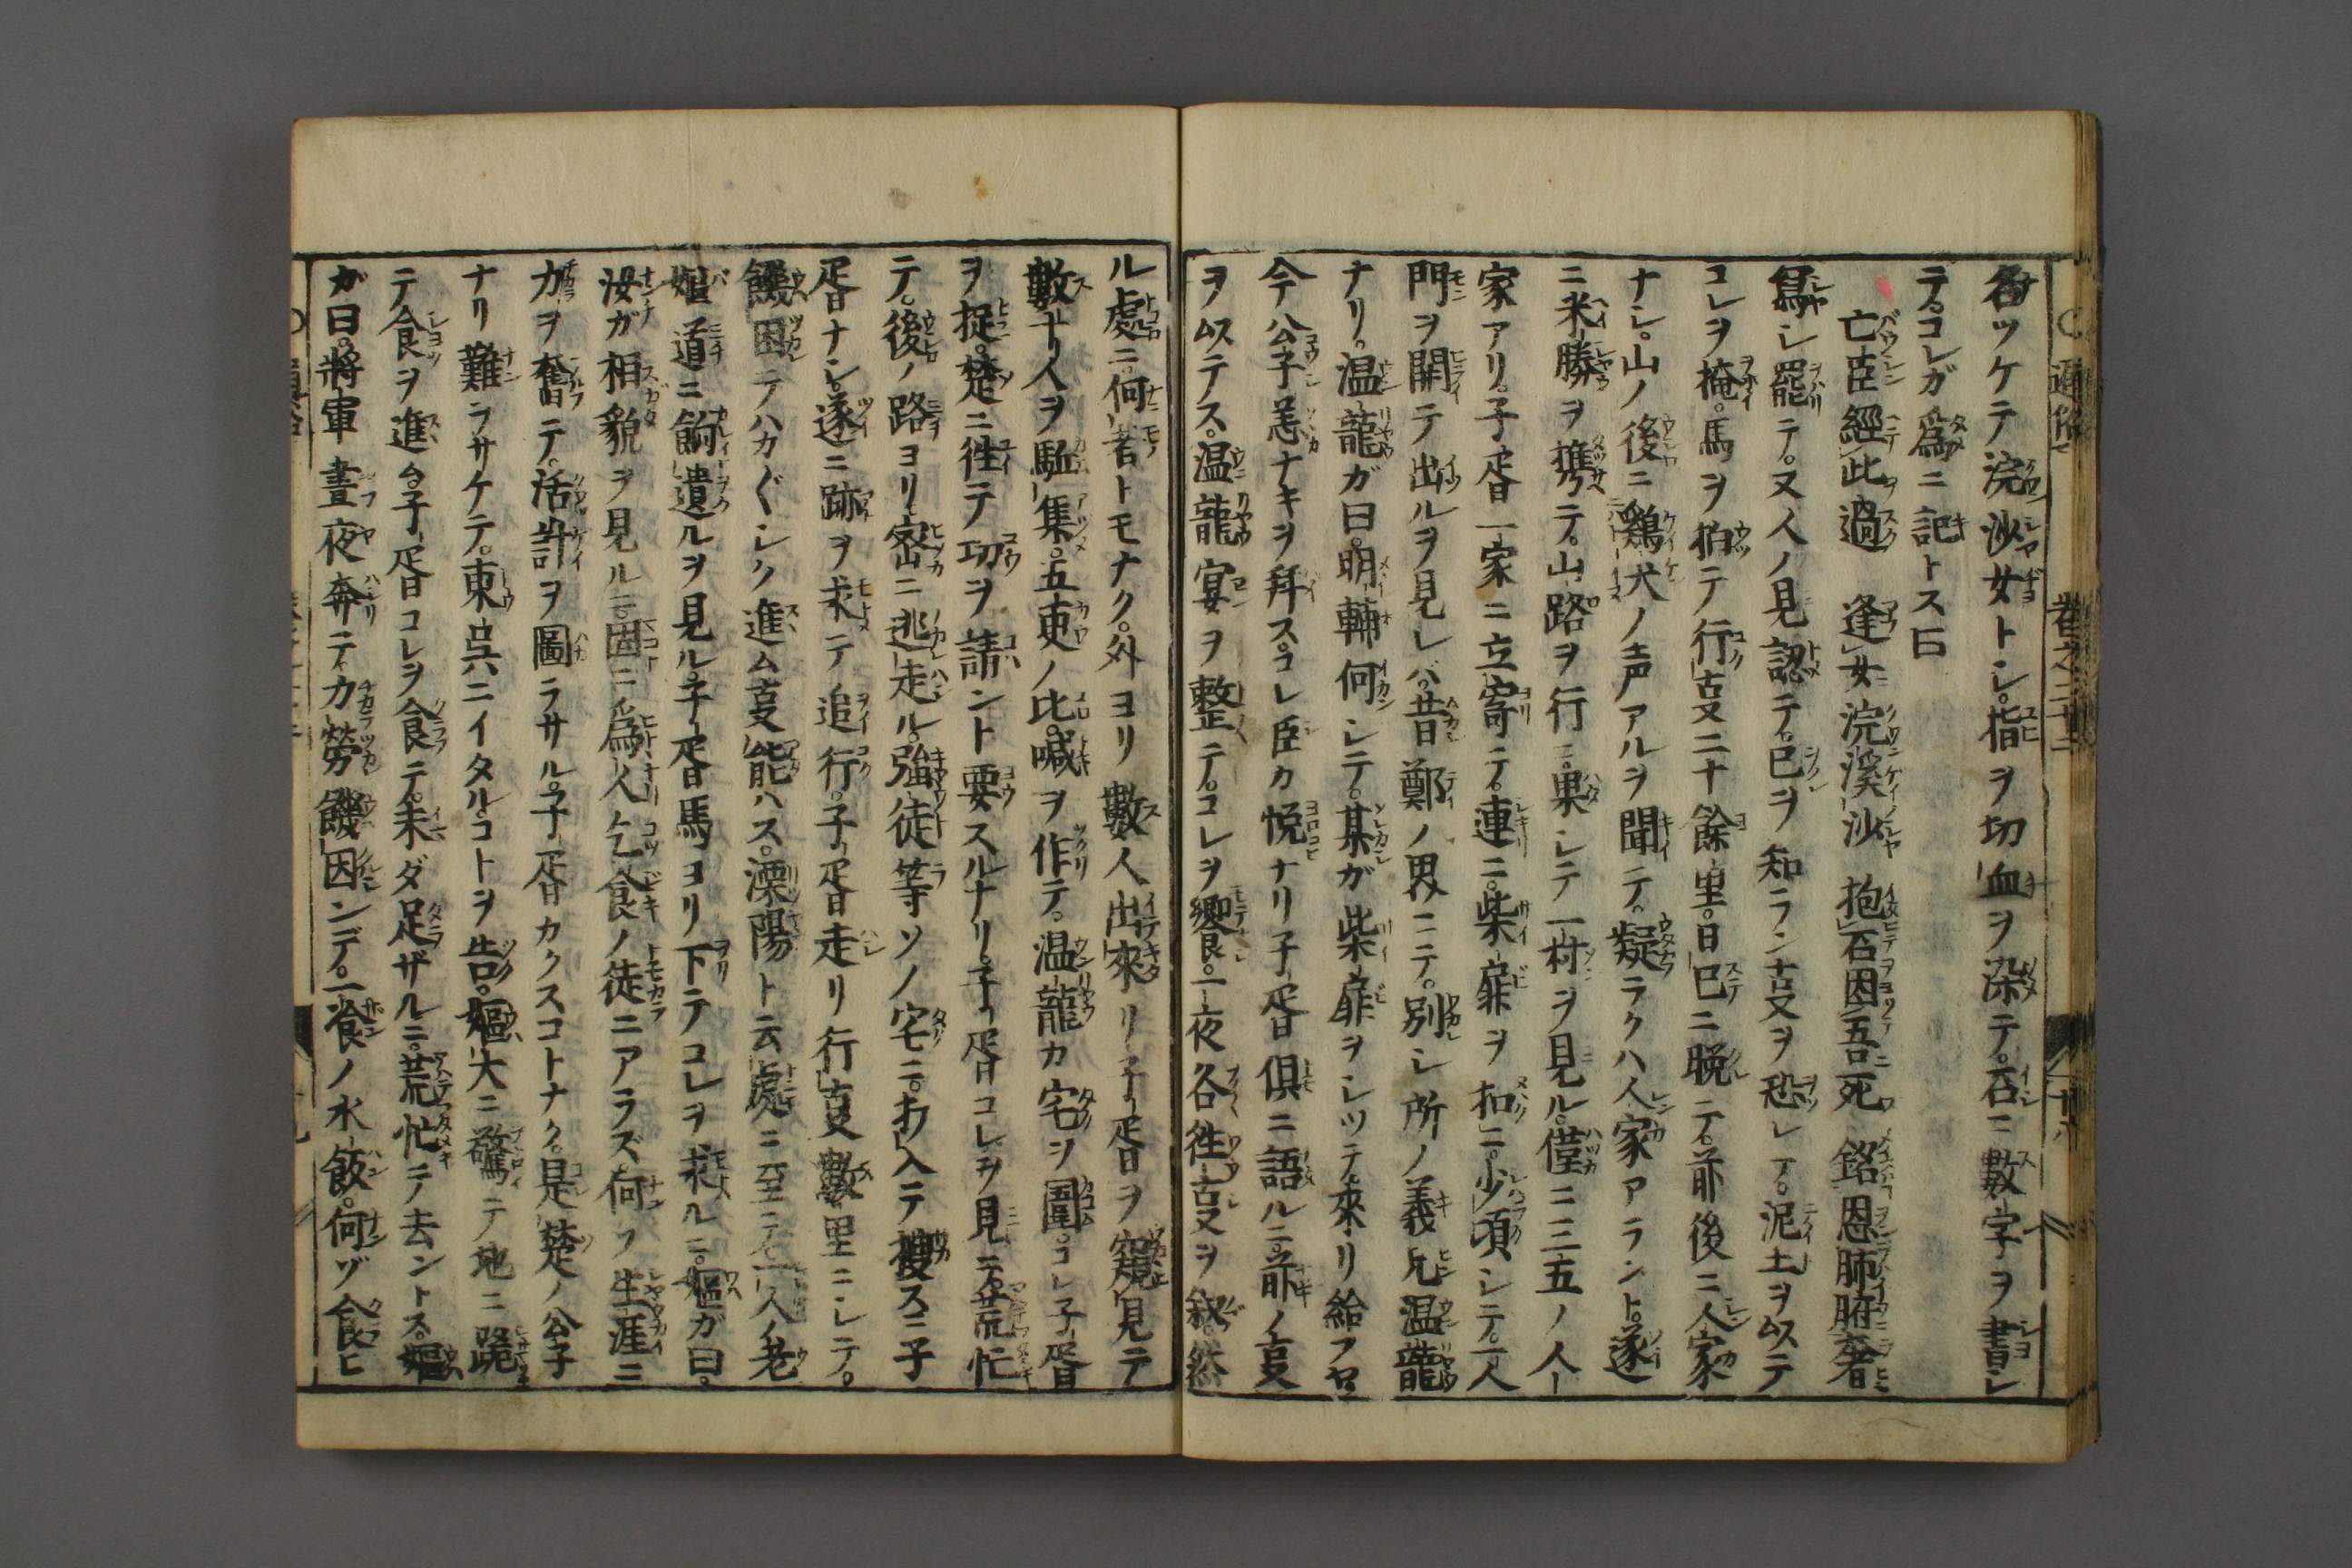 名ツケテ浣沙女トシ。指ヲ切血ヲ染テ。石ニ數字ヲ書シ
テ。コレガ爲ニ記トス曰
亡臣經此過 逢女浣溪沙 抱石因吾死 銘恩肺腑奢
寫シ罷テ。又人ノ見認テ。已ヲ知ラン叓ヲ恐レテ。泥土ヲ以テ
コレヲ掩。馬ヲ拍テ行叓二十餘里。日已ニ晩テ。前後ニ人家
ナシ。山ノ後ニ鶏犬ノ声アルヲ聞テ。疑ラクハ人家アラント。遂
ニ米勝ヲ携テ。山路ヲ行ニ。果シテ一村ヲ見ル。僅ニ三五ノ人
家アリ。子胥一家ニ立寄テ。連ニ柴扉ヲ扣ニ。少頃シテ。一人
門ヲ開テ出ルヲ見レバ。昔鄭ノ界ニテ。別レシ所ノ義兄温龍
ナリ。温龍ガ曰。明輔何シテ。某ガ柴扉ヲシツテ。來リ給フヤ
今公子恙ナキヲ拜ス。コレ臣カ悦ナリ子胥倶ニ語ルニ。前ノ叓
ヲ以テス。温龍宴ヲ整テ。コレヲ饗。一夜各徃叓ヲ叙。然
ル處ニ。何者トモナク。外ヨリ數人出來リ子胥ヲ窺見テ
數十人ヲ駈集。五更ノ比。喊ヲ作テ。温龍カ宅ヲ圍。コレ子胥
ヲ捉。楚ニ徃テ功ヲ請ント要スルナリ。子胥コレヲ見テ。荒忙
テ。後ノ路ヨリ密ニ逃走ル。強徒等ソノ宅ニ。打入テ搜スニ子
胥ナシ。遂ニ跡ヲ求テ追行。子胥走リ行叓數里ニシテ。
饑困テハカ〲シク進ム叓能ハス。溧陽ト云處ニ至テ。一人ノ老
嫗道ニ餉遺ルヲ見ル。子胥馬ヨリ下テコレヲ求ルニ。嫗ガ曰。
汝ガ相貌ヲ見ルニ。固ニ爲人乞食ノ徒ニアラズ何ソ生涯ニ
力ヲ奮テ。活計ヲ圖ラサル。子胥カクスコトナク。是楚ノ公子
ナリ難ヲサケテ。東呉ニイタルコトヲ告。嫗大ニ驚テ地ニ跪
テ食ヲ進ム。子胥コレヲ食テ。未ダ足ザルニ。荒忙テ去ントス。嫗
ガ曰。將軍晝夜奔テ。力勞饑困ンデ。一飡ノ水飯。何ヅ食ヒ